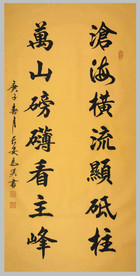 滄海橫流顯砥柱
萬山磅礴看主峰
庚子
書